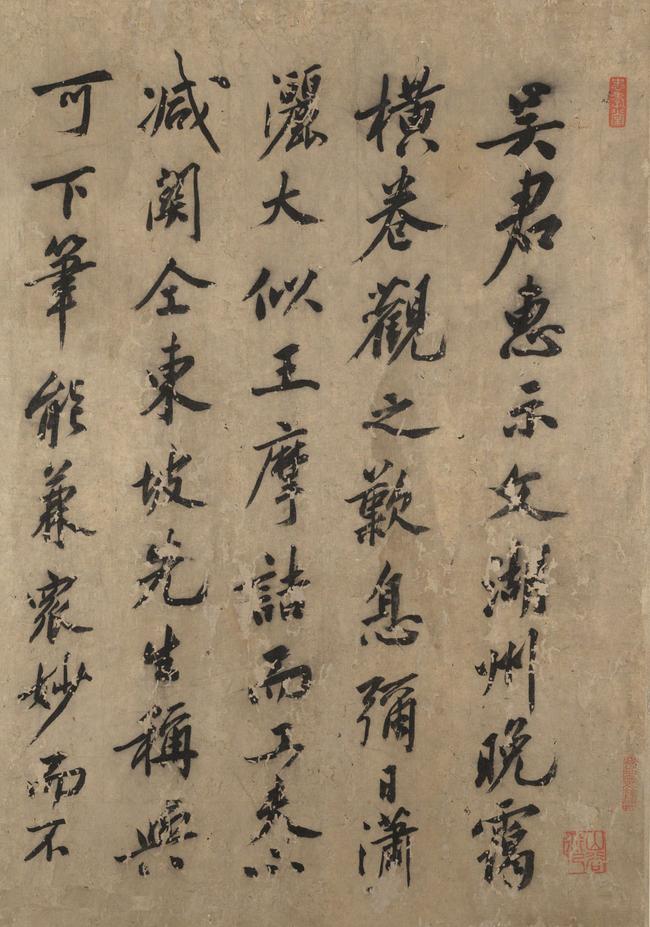 吳君惠示文湖州晚靄
橫卷觀之歎息彌日瀟
灑大似王摩詰而工夫不
減關仝東坡先生稱與
可下筆能兼衆妙而不